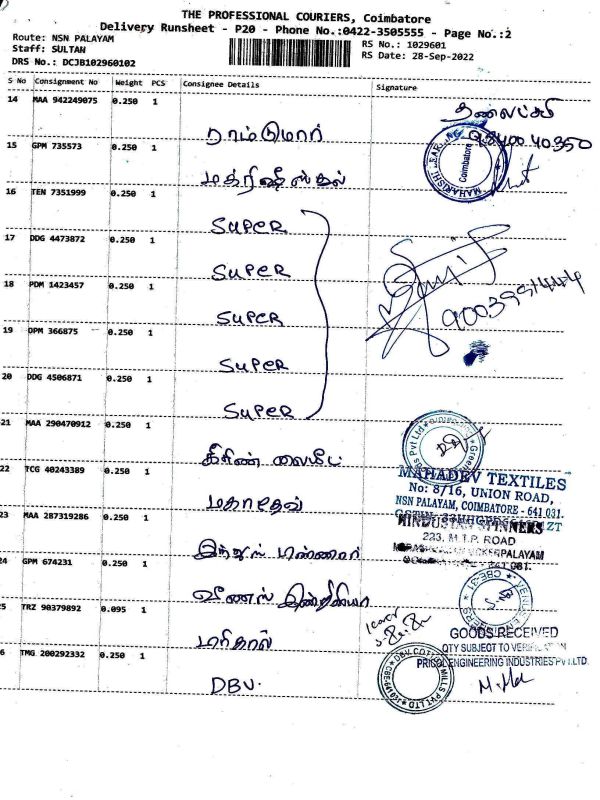 THE PROFESSIONAL COURIERS, Coimbatore
Delivery Runsheet - P20 - Phone No.:0422-3505555 - Page No.:2
Route: NSN PALAYAM
Staff: SULTAN
DRS No.: DCJB102960102
RS No.: 1029601
RS Date: 28-Sep-2022
S No Consignment No Weight PCS Consignee Details Signature
14 MAA 942249075 0.250 1
ராம்குமார்
15 GPM 735573 0.250 1
மகரிஷி
16 TEN 7351999 0.250 1
SUPER
17 DDG 4473872 0.250 1
SUPER
18 PDM 1423457 0.250 1
SUPER
19 OPM 366875 0.250 1
SUPER
20 DDG 4506871 0.250 1
SUPER
21 MAA 290470912 0.250 1
கிரீண்
22 TCG 40243389 0.250 1
மகாதேவ்
23 MAA 287319286 0.250 1
24 GPM 674231 0.250 1
வீணஸ் இண்றீயா
25 TRZ 90379892 0.095 1
26 TMG 200292332 0.250 1
DBV.
98400 40350
MAHARISHI LEARNING
Coimbatore
MAHADEV TEXTILES
No: 8/16, UNION ROAD,
NSN PALAYAM, COIMBATORE - 641 031.
HINDUSTAN SPINNERS
223, M.T.P. ROAD
GOODS RECEIVED
QTY SUBJECT TO VERIFICATION
PRICOL ENGINEERING INDUSTRIES PVT.LTD.
DBV. COTTON MILLS PVT LTD